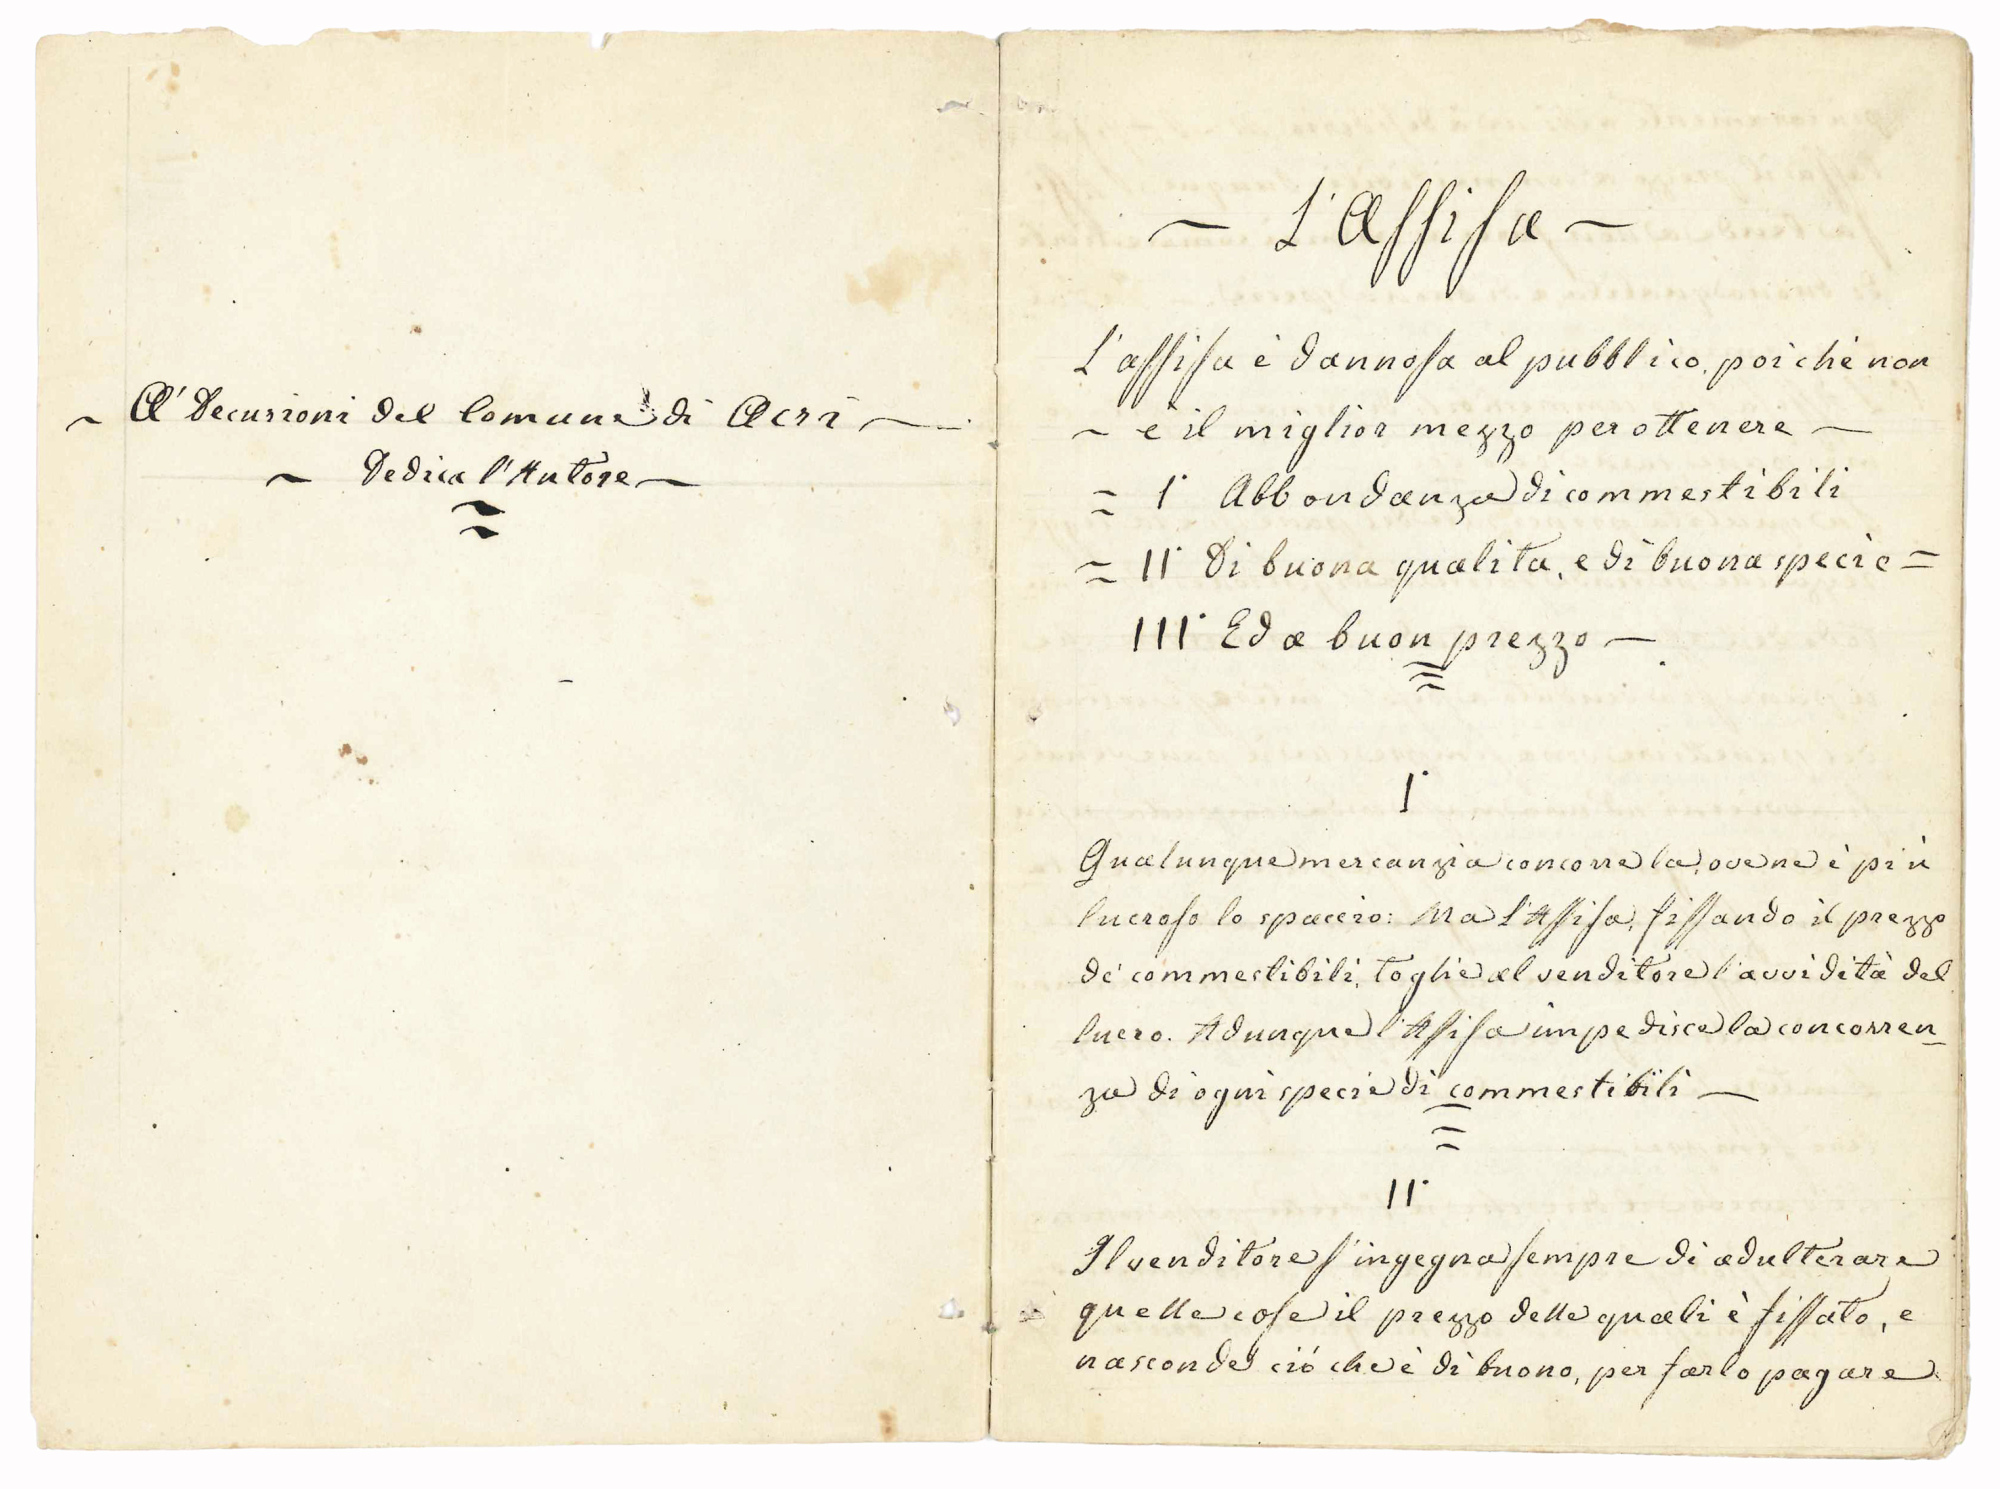 ~ A' Decurioni del Comune di Acri ~
~ Dedica l'Autore ~
~ L'Assisa ~
L'assisa è dannosa al pubblico, poichè non
~ è il miglior mezzo per ottenere ~
= I° Abbondanza di commestibili
= II° Di buona qualita, e di buona specie =
III° Ed a buon prezzo ~
I°
Qualunque mercanzia concorre la, ove ne è più
lucroso lo spaccio: Ma l'Assisa, fissando il prezzo
de' commestibili, toglie al venditore l'avvidità del
lucro. Adunque l'Assisa impedisce la concorren-
za di ogni specie di commestibili ~
II°
Il venditore s'ingegna sempre di adulterare
quelle cose il prezzo delle quali è fissato, e
nasconde ciò che è di buono, per farlo pagare